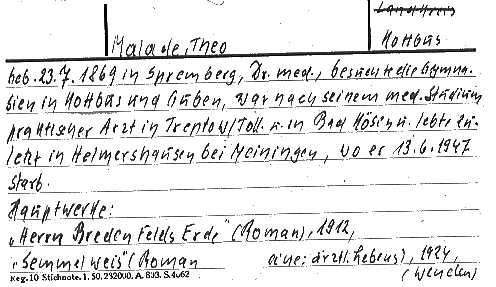 Landkreis
Malade, Theo
Kottbus
geb. 23.7.1869 in Spremberg, Dr. med., besuchte die Gymna-
sien in Kottbus und Guben, war nach seinem med. Studium
praktischer Arzt in Treptow/Toll. u. in Bad Kösen u. lebte zu-
letzt in Helmershausen bei Meiningen, wo er 13.6.1947
starb.
Hauptwerke:
"Herrn Bredenfelds Erde" (Roman), 1912,
"Semmelweis" (Roman eines ärztl. Lebens), 1924,
(wenden)
Reg. 10 Stichnote. 1. 50, 232000. A. 803. S. 4062